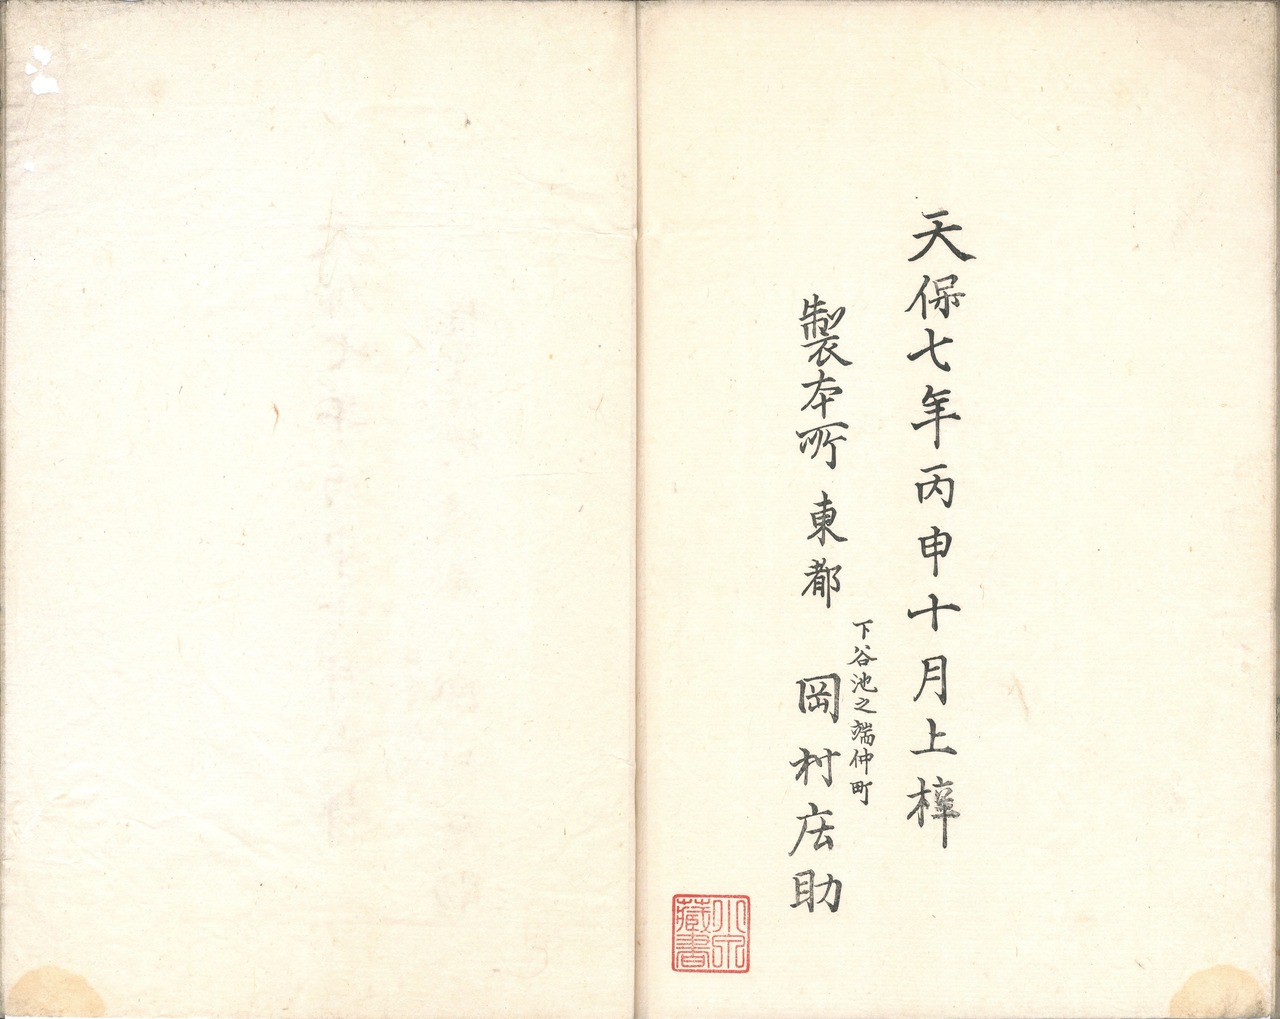 天保七年丙申十月上梓
下谷池之端仲町
製本所 東都 岡村庄助
小穴
藏書